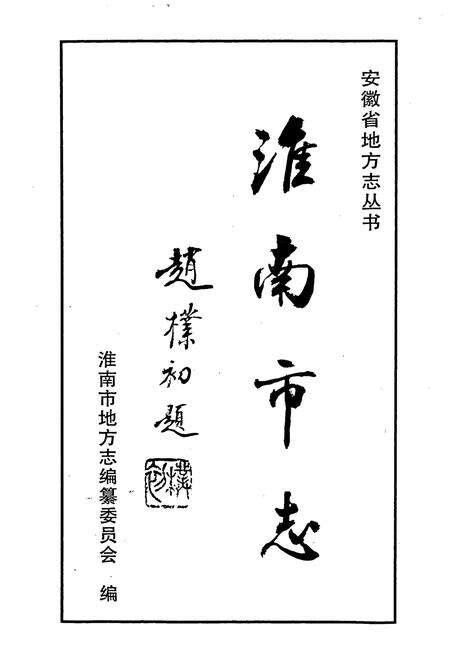 安徽省地方志丛书
淮南市志
趙樸初題
樸初
淮南市地方志编纂委员会 编